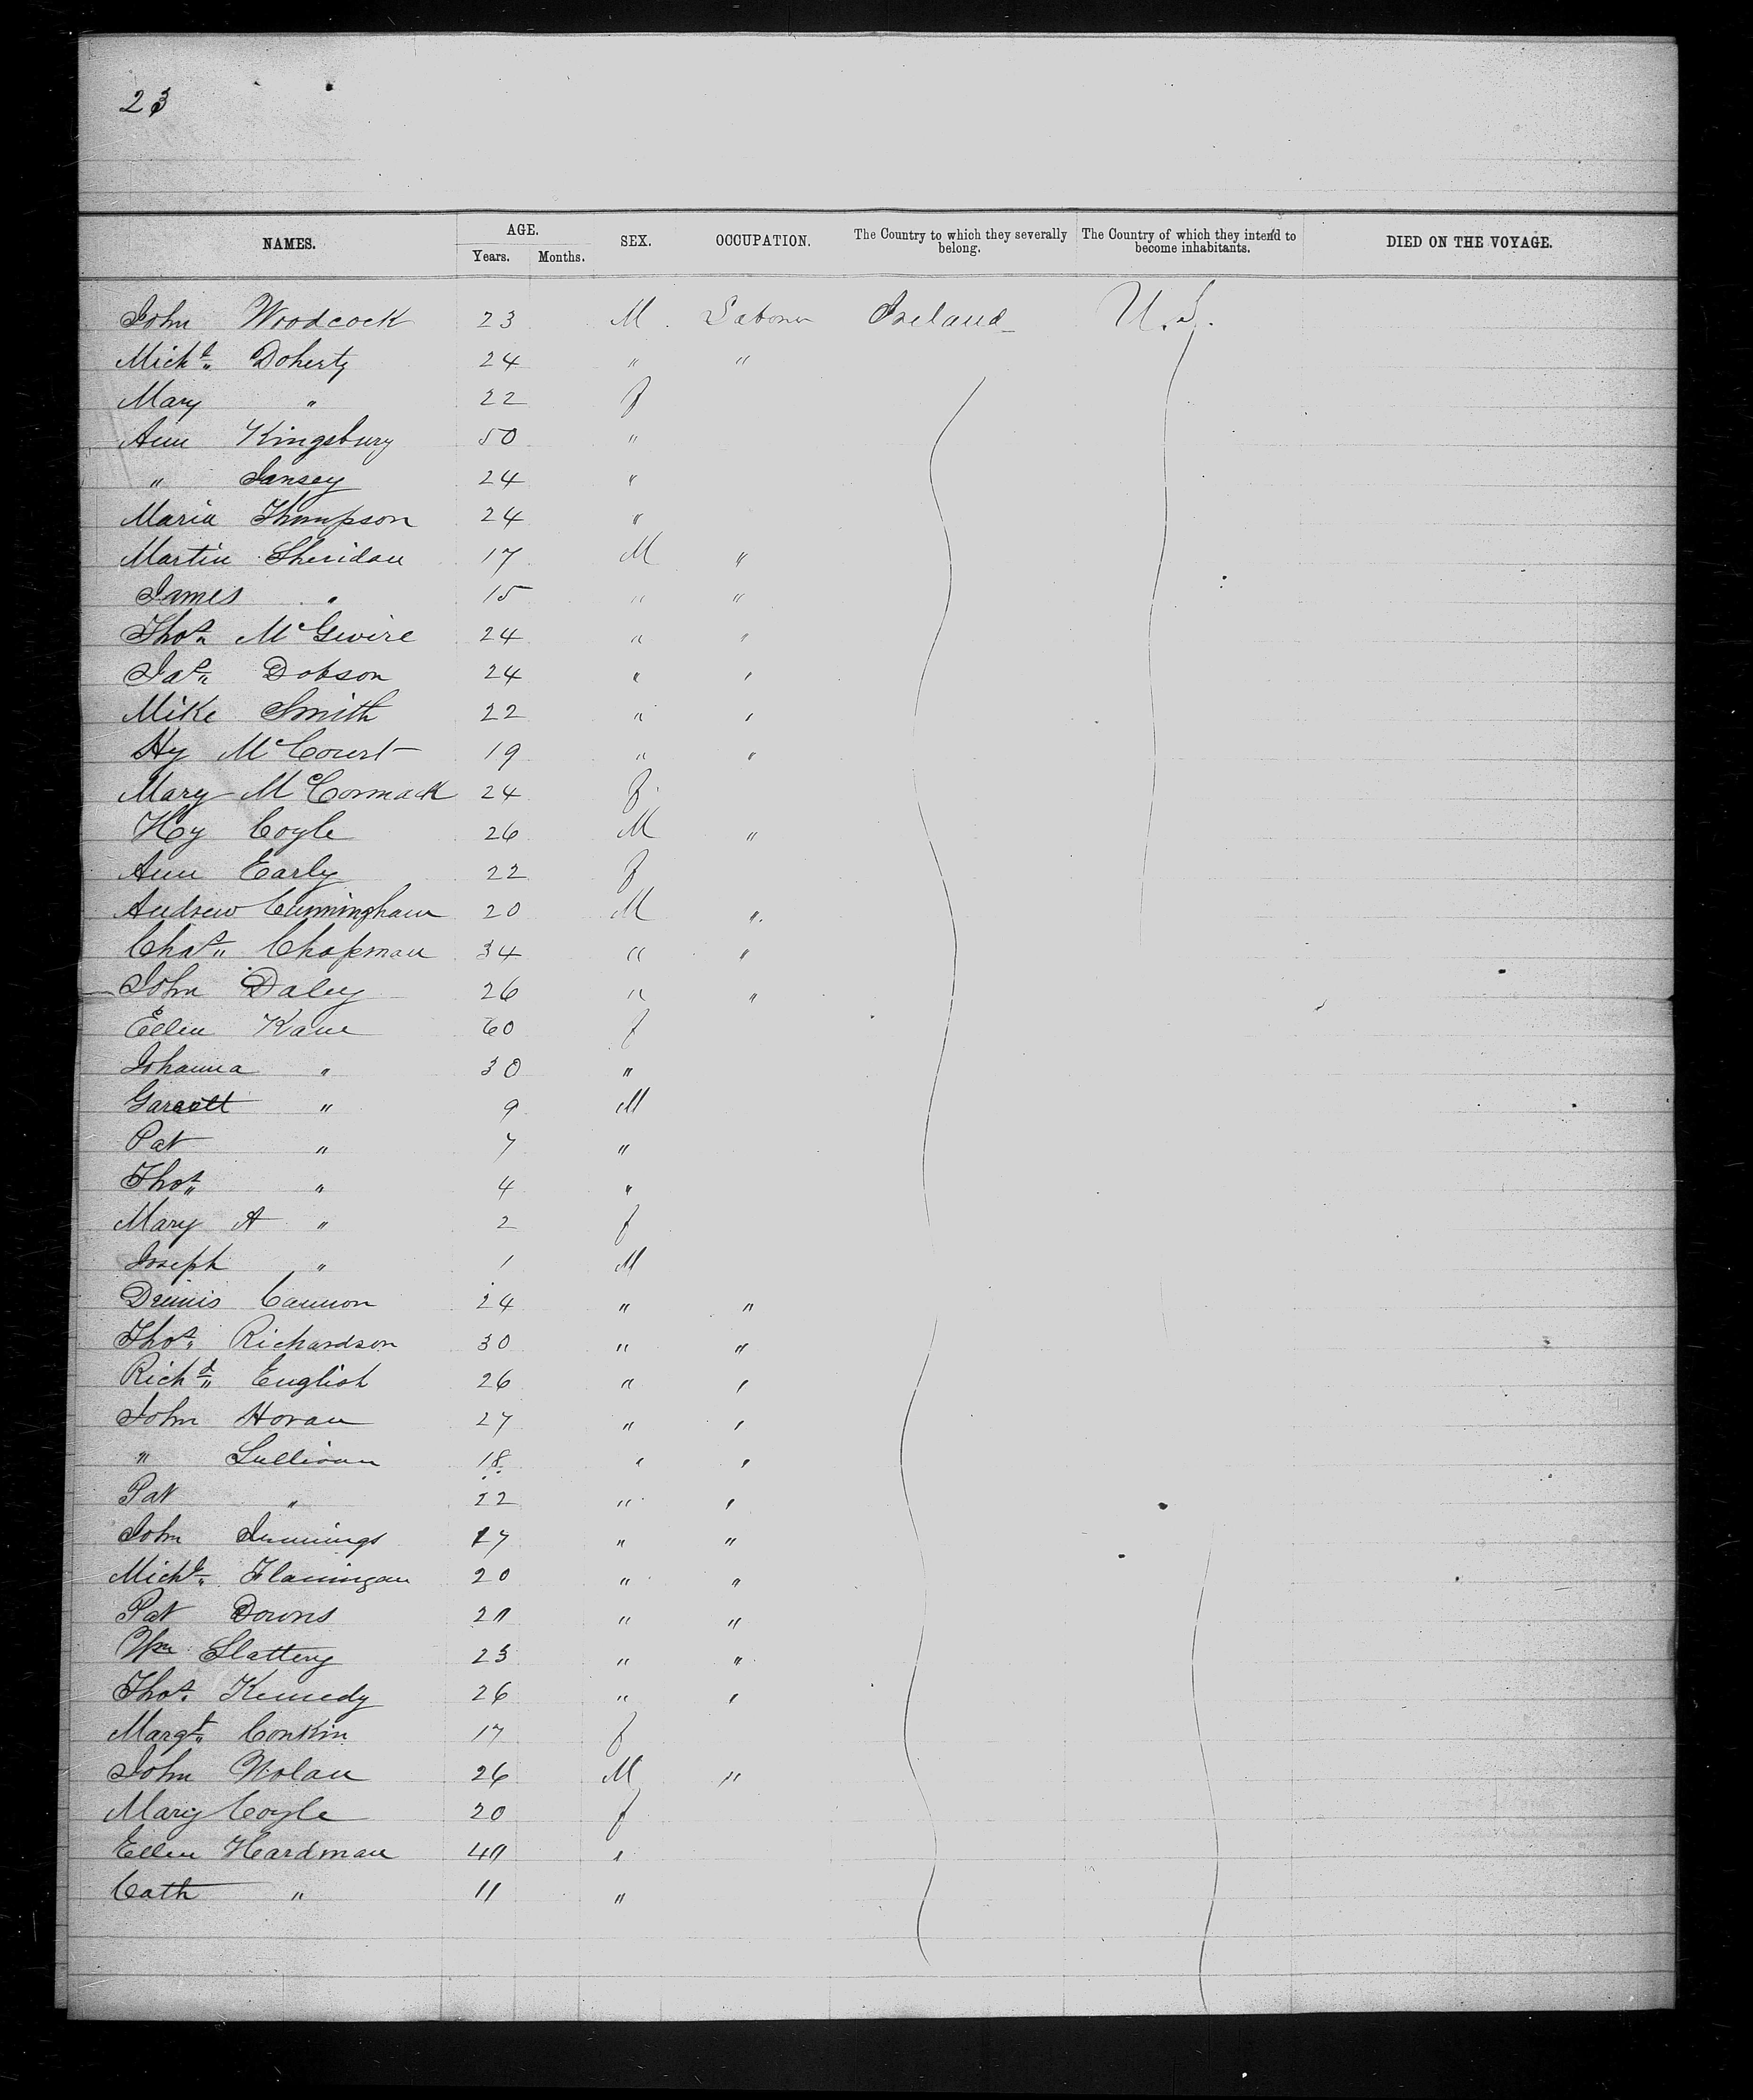 23
NAMES. AGE. Years. Months. SEX. OCCUPATION. The Country to which they severally belong. The Country of which they intend to become inhabitants. DIED ON THE VOYAGE.
John Woodcock 23 M. Laborer Ireland U.S.
Michl. Doherty 24 " "
Mary " 22 f
Ann Kingsbury 50 "
" 24 "
Maria Thompson 24 "
Martin Sheridan 17 M "
James " 15 " "
Thos. McGwire 24 " "
Jas. Dobson 24 " "
Mike Smith 22 " "
Hy McCourt 19 " "
Mary McCormack 24 f.
Hy Coyle 26 M "
Ann Early 22 f
Andrew Cunningham 20 M "
Chas. Chapman 34 " "
John Daley 26 " "
Ellen Kane 60 f
Johanna " 30 "
Garrett " 9 M
Pat " 7 "
Thos. " 4 "
Mary A " 2 f
Joseph " 1 M
Dennis Cannon 24 " "
Thos. Richardson 30 " "
Richd. English 26 " "
John Horan 27 " "
" Sullivan 18 " "
Pat " 22 " "
John Jennings 17 " "
Michl. Flanningan 20 " "
Pat Downs " "
Wm Slattery 23 " "
Thos. Kennedy 26 " "
Margt. Conkin 17 f
John Nolan 26 M "
Mary Coyle 20 f
Ellen Hardman "
Cath " 11 "